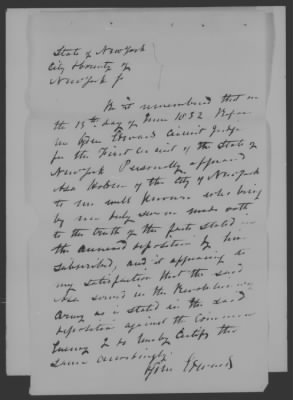 State of New York
City & County of
New York ss
Be it remembered that on
the 15th day of June 1832 Before
me Ogden Edwards Circuit Judge
for the First Circuit of the State of
New York Personally appeared
Asa Holden of the City of New York
to me well known who being
by me duly sworn made oath
to the truth of the facts stated in
the annexed deposition by him
subscribed, and it appearing to
my satisfaction that the said
Asa served in the Revolutionary
Army as is stated in the said
deposition against the Common
Enemy I do hereby Certify the
same accordingly
Ogden Edwards